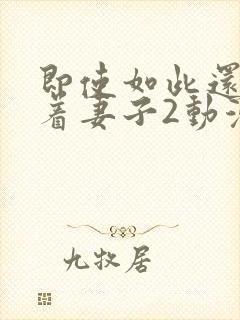 即使如此還
着妻子2動
九牧居